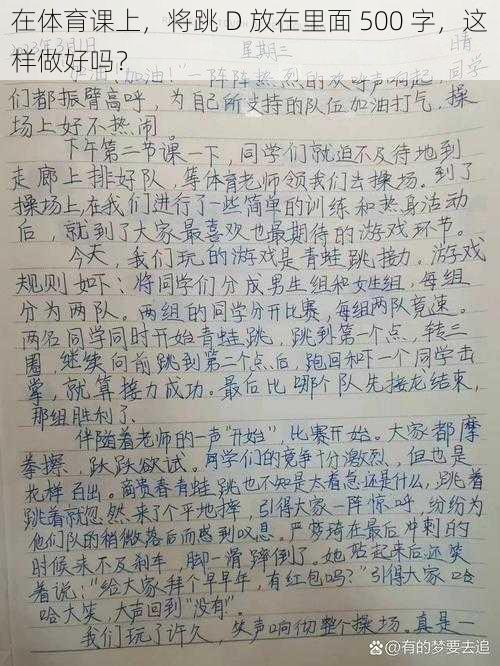 在体育课上，将跳 D 放在里面 500 字，这
样做好吗？
2023年3月1日 星期三 晴
“加油！加油！”一阵阵热烈的欢呼声响起，同学
们都振臂高呼，为自己所支持的队伍加油打气，操
场上好不热闹。
下午第二节课一下，同学们就迫不及待地到
走廊上排好队，等体育老师领我们去操场。到了
操场上，在我们进行了一些简单的训练和热身活动
后，就到了大家最喜欢也最期待的游戏环节。
今天，我们玩的游戏是青蛙跳接力。游戏
规则如下：将同学们分成男生组和女生组，每组
分为两队。两组的同学分开比赛，每组两队竞速。
两名同学同时开始青蛙跳，跳到第一个点，转三
圈，继续向前跳到第二个点后，跑回和下一个同学击
掌，就算接力成功。最后比哪个队先接龙结束，
那组胜利了。
伴随着老师的一声“开始”，比赛开始。大家都摩
拳擦，跃跃欲试。同学们的竞争十分激烈，但也是
花样百出。商贵春青蛙跳也不知是太着急还是什么，跳着
跳着就忽然来了个平地摔，引得大家一阵惊呼，纷纷为
他们队的稍微落后而感到叹息。严梦琦在最后冲刺的
时候来不及刹车，脚一滑蹿倒了。她站起来后还笑
着说：“给大家拜个早早年，有红包吗？”引得大家哈
哈大笑，大声回到“没有”。
我们玩了许久，笑声响彻整个操场。真是一
知乎 @有的梦要去追